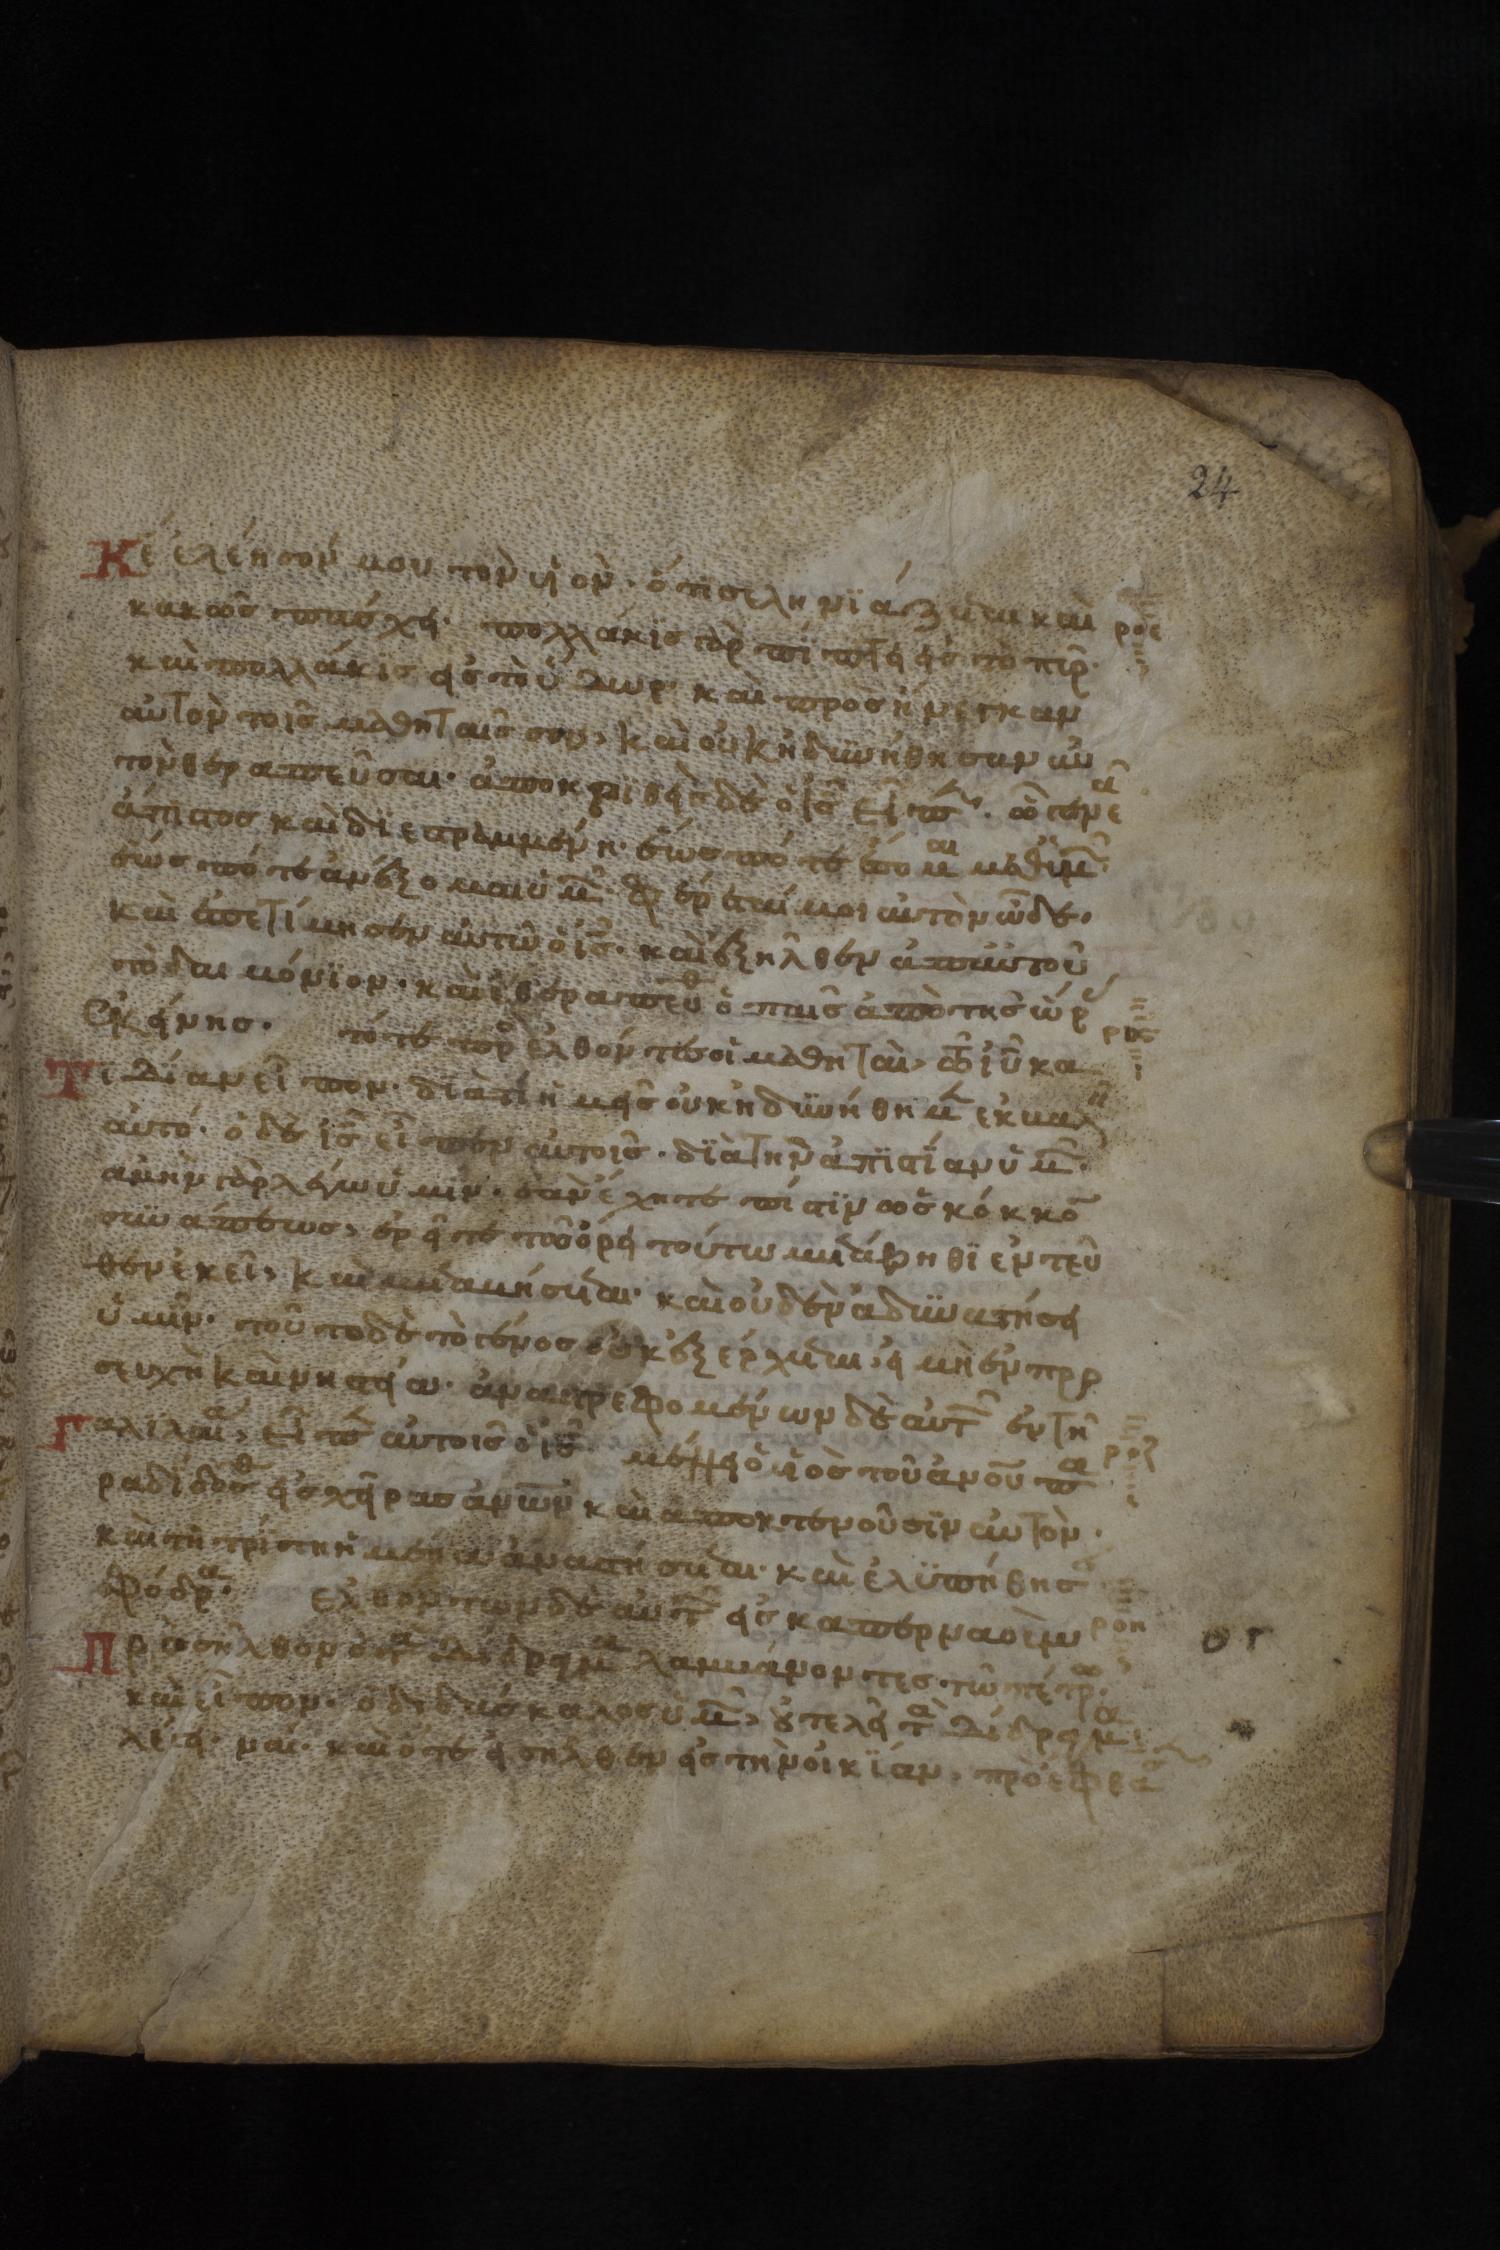 24
Κε ἐλέησόν μου τὸν ὑιόν· ὅτι σεληνϊάζεται καὶ
κακῶς πάσχει· πολλάκις γὰρ πίπτει εἰς τὸ πῦρ·
ροε
καὶ πολλάκις εἰς τὸ ὕδωρ· καὶ προσήνεγκαν
αὐτὸν τοῖς μαθηταῖς σου, καὶ οὐκ ἠδυνήθησαν αὐ
τὸν θεραπεῦσαι· ἀποκριθεὶς δὲ ὁ ις εἶπε· ὦ γενεὰ
ἄπιστος καὶ διεστραμμένη· ἕως πότε ἔσομαι μεθ ὑμ·
ἕως πότε ἀνέξομαι ὑμ· φέρεταί μοι αὐτὸν ὧδε·
καὶ ἐπετίμησεν αὐτῶ ὁ ις· καὶ ἐξῆλθεν ἀπ αὐτοῦ
τὸ δαιμόνιον· καὶ ἐθεραπεύθ ὁ παῖς ἀπὸ τῆς ὥρ
ἐκείνης· τότε προσελθόντες οἱ μαθηταὶ, τῶ ιυ κα
ρος
Τ ἰδίαν εἶπον· διατί ἡμεῖς οὐκ ἠδυνήθημ ἐκβαλ
αὐτό· ὁ δὲ ις εἶπεν αὐτοῖς· διὰ τὴν ἀπιστίαν ὑμ·
ἀμὴν γὰρ λέγω ὑμῖν· ἐὰν ἔχητε πίστιν ὡς κόκκο
σινάπεως, ἐρεῖτε τῶ ὄρει τούτω μετάβηθι ἐντεῦ
θεν ἐκεῖ, καὶ μεταβήσεται· καὶ οὐδὲν ἀδυνατήσει
ὑμῖν· τοῦτο δὲ τὸ γένος οὐκ ἐξέρχεται, εἰ μὴ ἐν προ
σευχῆ καὶ νηστεία· ἀναστρεφομένων δὲ αὐτ ἐν τῆ
Γαλιλαί, εἶπε αὐτοῖς ὁ ις· μέλλει ὁ ὑιὸς τοῦ ανου πα
ροζ
ραδίδοσθ εἰς χεῖρας ανων καὶ ἀποκτενοῦσιν αὐτόν·
καὶ τῆ τρίτη ἡμέρα ἀναστήσεται· καὶ ἐλυπήθησ
σφόδρα· ἐλθόντων δὲ αὐτ εἰς καπερναοὺμ
ροη
Προσῆλθον οἱ τὰ δίδραχμ λαμβάνοντες τῶ πέτρω·
καὶ εἶπον· ὁ διδάσκαλος ὑμ, οὐ τελεῖ τὰ δίδραχμα;
λέγει· ναί· καὶ ὅτε εἰσῆλθεν εἰς τὴν οἰκίαν, προέφθασ